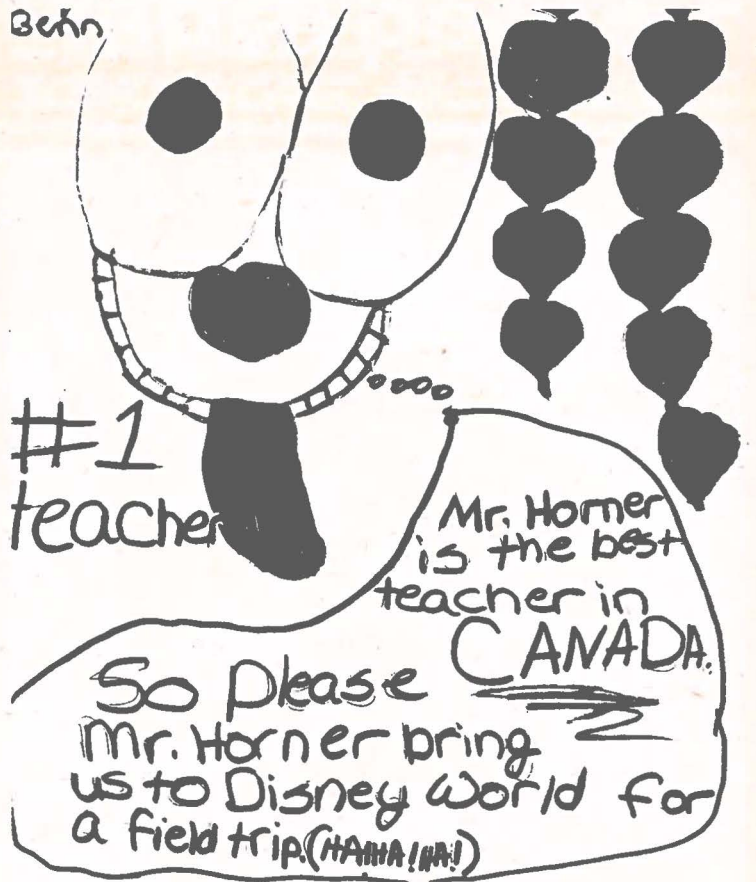 #1
teacher
Mr. Horner
is the best
teacher in
CANADA.
So Please
Mr. Horner bring
us to Disney World for
a field trip. (HA!HA!HA!)